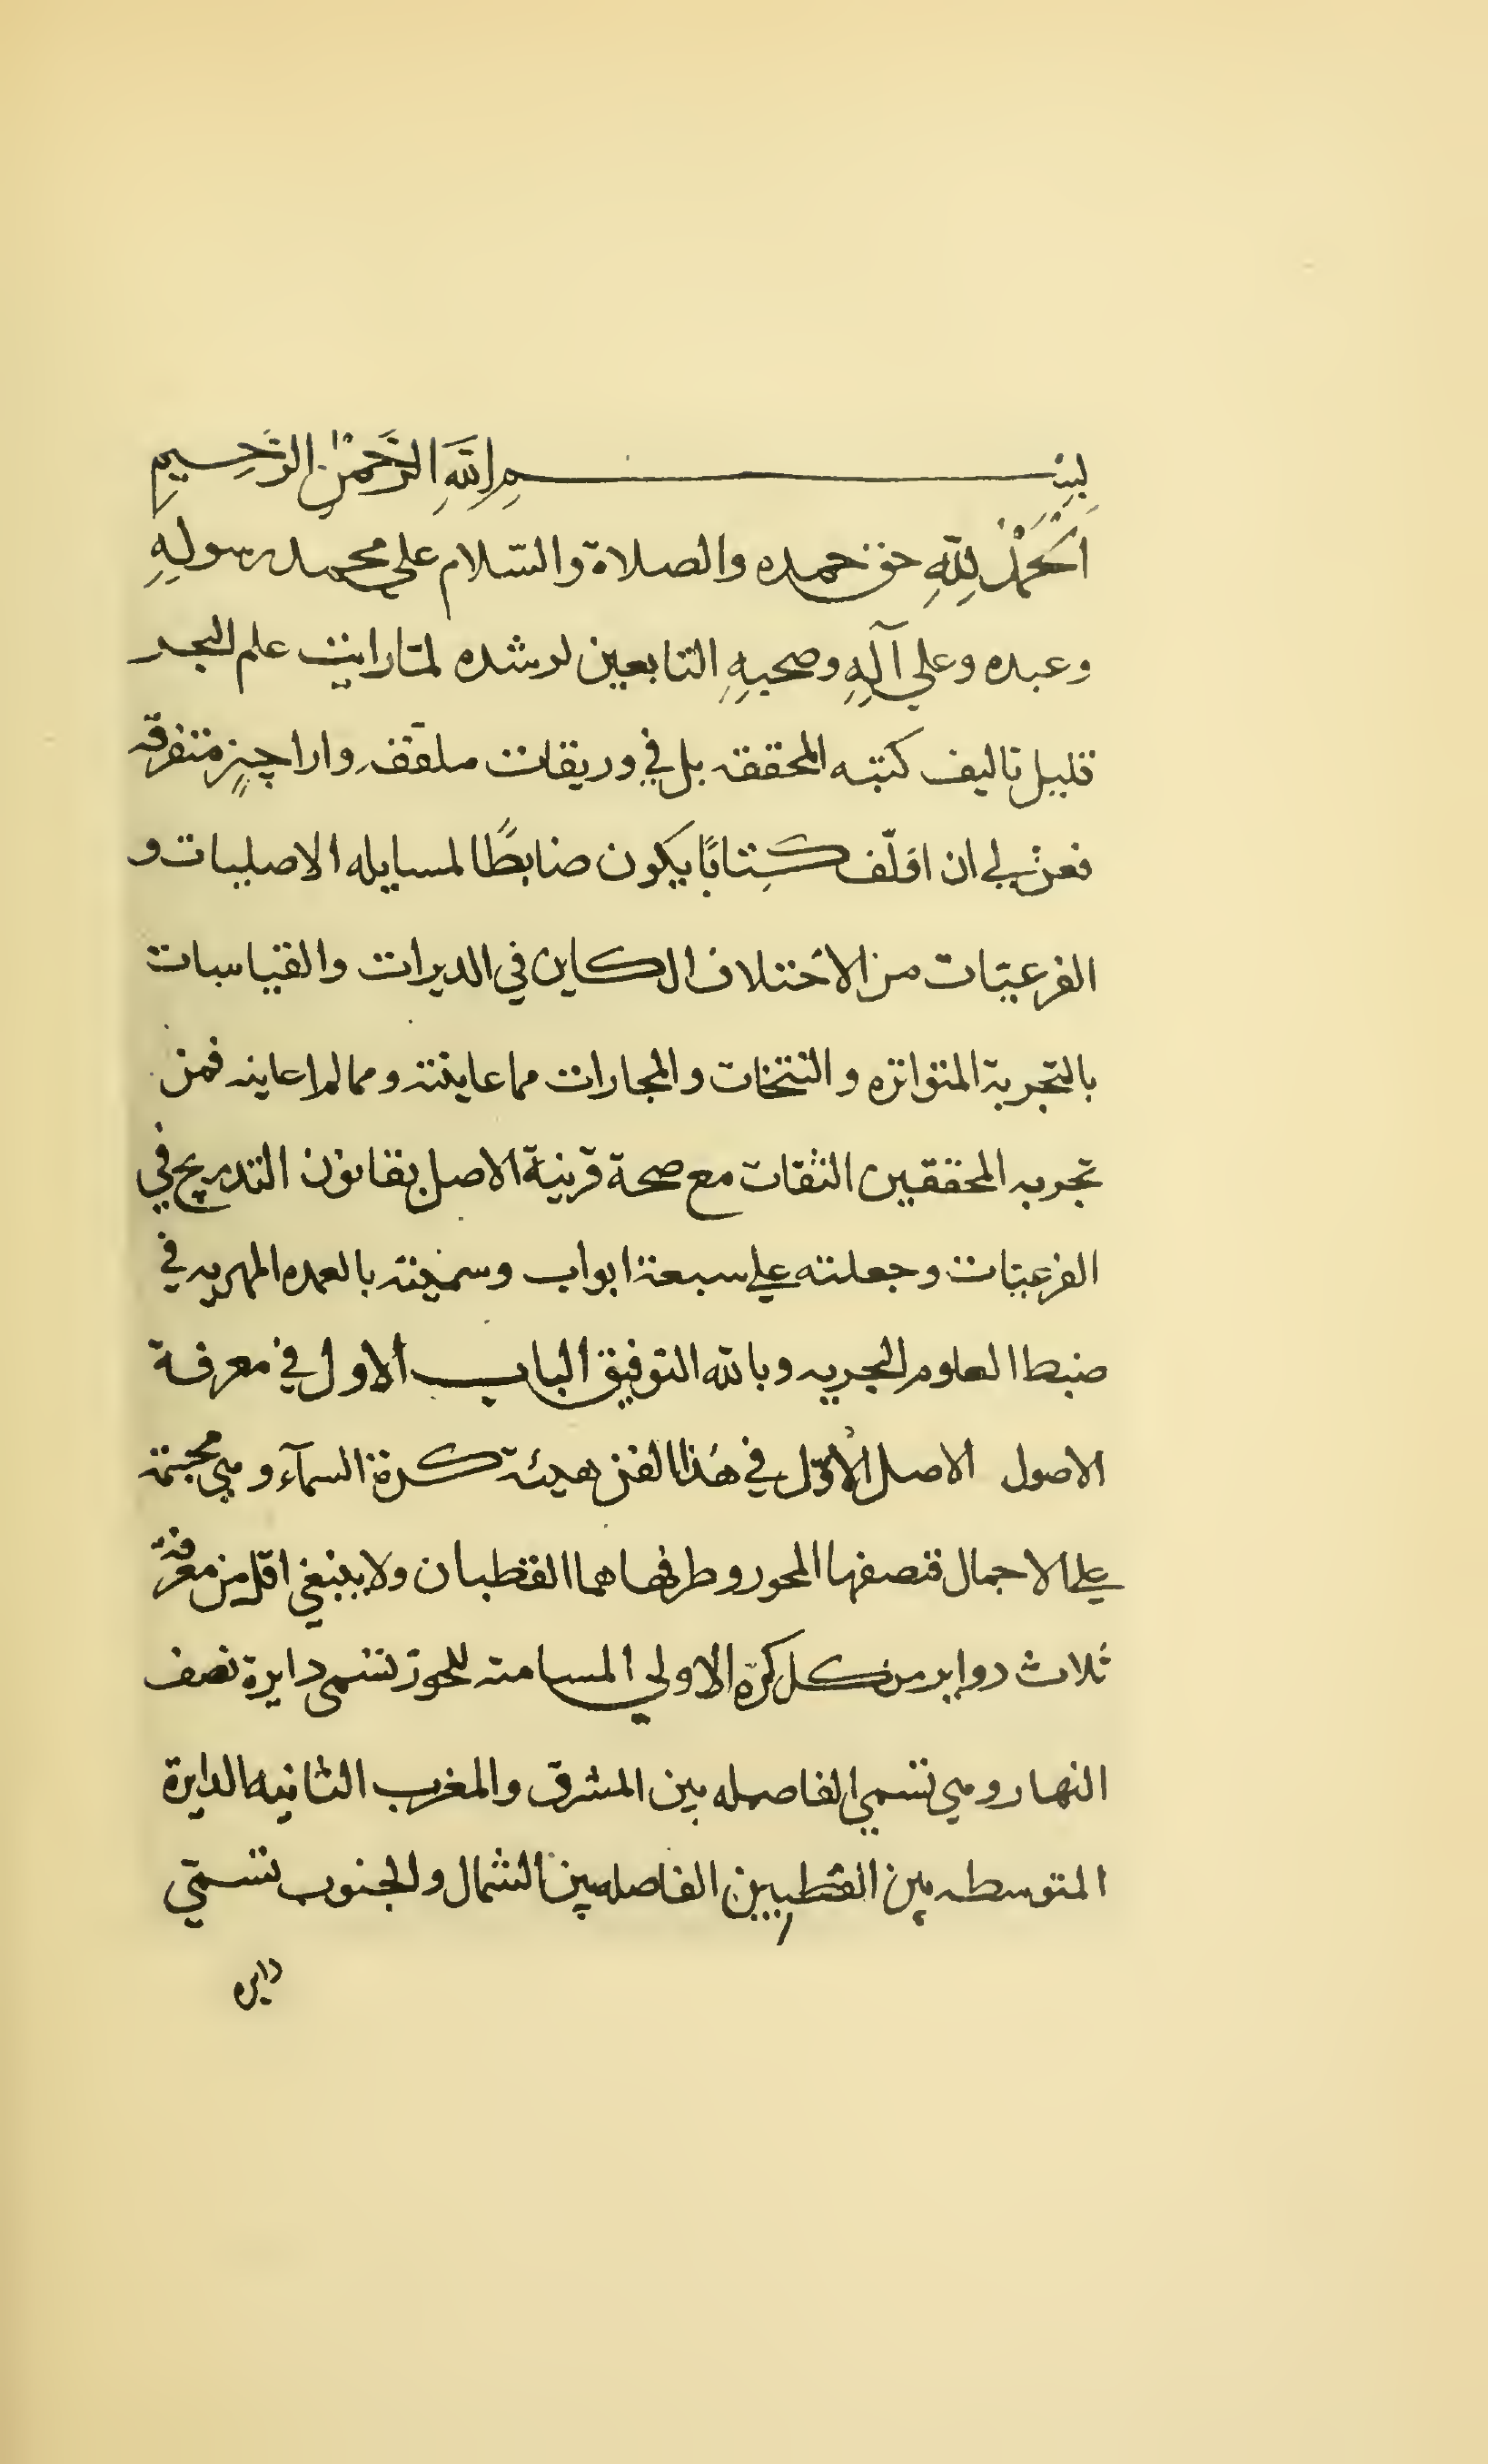 بِسْمِ اللَّهِ الرَّحْمٰنِ الرَّحِيمِ
اَلحَمْدُ لِلَّهِ حق حمده والصلاة والسّلام علي محمد رسولِهِ
وعبده وعلي آلِهِ وصحبِهِ التابعين لرشده لمّا رايت علم البحر
قليل تاليف كتبه المحققه بل في وريقات ملفقه واراجيزٍ متفرقه
فعنّ لي ان اؤلّف كِتابًا يكون ضابطًا لمسايله الاصليات و
الفرعيّات من الاختلاف الكاين في الديرات والقياسات
بالتجربة المتواتره والنتخات والمجارات مما عاينته ومما لم اعاينه فمن
تجربه المحققين الثقات مع صحة قرينة الاصل بقانون التدريج في
الفرعيّات وجعلته علي سبعة ابواب وسميته بالعمده المهريه في
ضبط العلوم البحريه وبالله التوفيق الباب الاول في معرفة
الاصول الاصل الاوّل في هٰذا الفن هيئة كرة السمآء وهي مجسّمة
علي الاجمال فنصفها المحور وطرفها هما القطبان ولا ينبغي اقل من معرفة
ثلاث دواير من كل كرّه الاولي المسامته للمحور تسمي دايرة نصف
النهار وهي تسمي الفاصله بين المشرق والمغرب الثانيه الدايرة
المتوسطه بين القطبين الفاصله بين الشمال والجنوب تسمّي
دايره